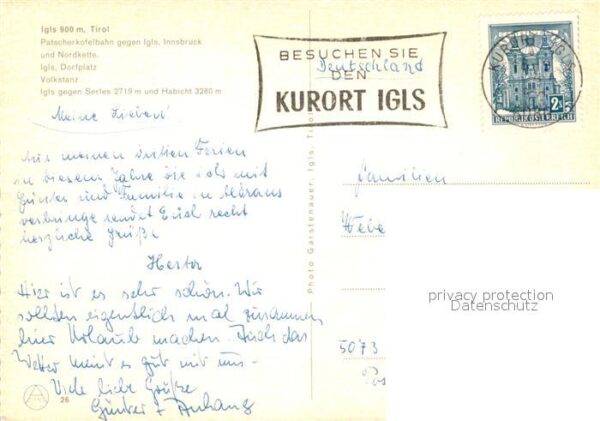 Igls 900 m, Tirol
Patscherkofelbahn gegen Igls, Innsbruck
und Nordkette.
Igls, Dorfplatz
Volkstanz
Igls gegen Serles 2719 m und Habicht 3280 m
BESUCHEN SIE
DEN
KURORT IGLS
Deutschland
IGLS
2.50
REPUBLIK ÖSTERREICH
Meine Lieben!
Aus meinen dritten Ferien
in diesem Jahre die ich mit
Günter und Familie in
verbringe sendet Euch recht
herzliche Grüße
Hier ist es sehr schön. Wir
sollten eigentlich mal zusammen
hier Urlaub machen. Auch das
Wetter meint es gut mit uns.
Viele liebe Grüße
Günter + Anhang
Photo Gerstenauer, Igls, Tirol
Familien
Webe
5073
privacy protection
Datenschutz
26